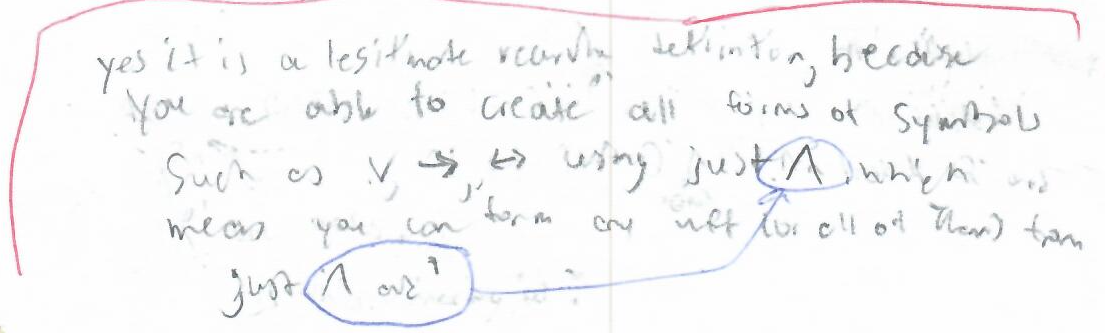 yes it is a legitimate recursive definition, because
you are able to create all forms of symbols
such as ∨, →, ↔ using just ∧ which
means you can form any wff (or all of them) from
just ∧ and ¬